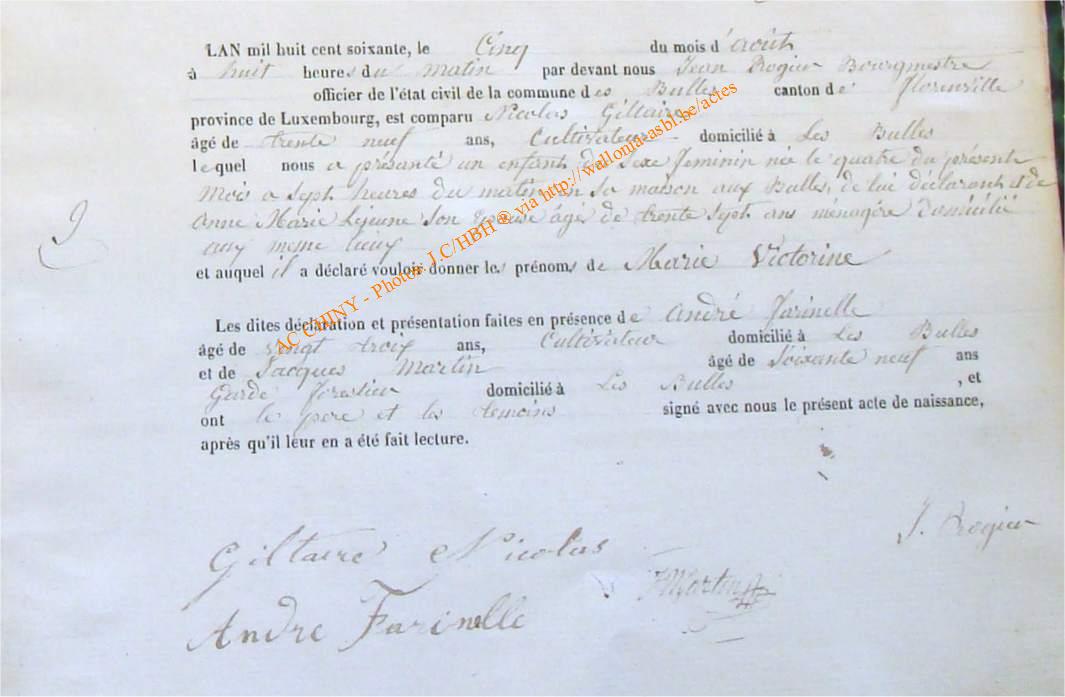 LAN mil huit cent soixante, le Cinq du mois d'août
à huit heures du matin par devant nous Jean Rogier Bourgmestre
officier de l'état civil de la commune des Bulles canton de florenville
province de Luxembourg, est comparu Nicolas Giltaire
âgé de trente neuf ans, Cultivateur domicilié à Les Bulles
lequel nous a présenté un enfant du sexe feminin née le quatre du présent
mois a sept heures du matin en sa maison aux Bulles, de lui déclarant et de
Anne Marie Lejeune son épouse âgé de trente sept ans ménagére domicilié
aux meme lieux
et auquel il a déclaré vouloir donner les prénoms de Marie Victorine
Les dites déclaration et présentation faites en présence de André Farinelle
âgé de vingt trois ans, Cultivateur domicilié à Les Bulles
et de Jacques Martin âgé de Soixante neuf ans
Garde forestier domicilié à Les Bulles , et
ont le pere et les temoins signé avec nous le présent acte de naissance,
après qu'il leur en a été fait lecture.
9
J. Rogier
Giltaire Nicolas
JMartin
Andre Farinelle
AC CHINY - Photos J.C/HBH ® via http://wallonia-asbl.be/actes